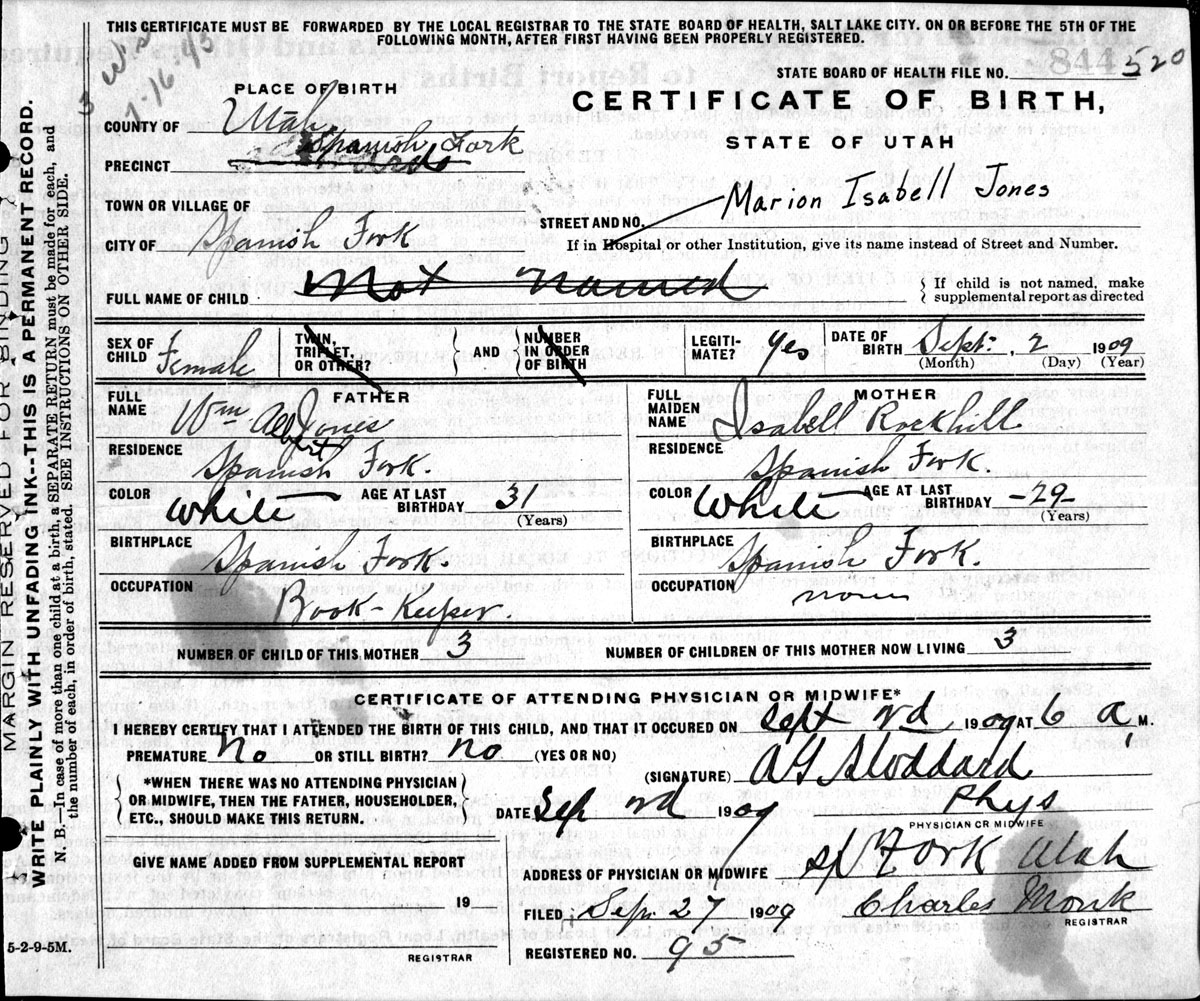 THIS CERTIFICATE MUST BE FORWARDED BY THE LOCAL REGISTRAR TO THE STATE BOARD OF HEALTH, SALT LAKE CITY. ON OR BEFORE THE 5TH OF THE
FOLLOWING MONTH, AFTER FIRST HAVING BEEN PROPERLY REGISTERED.
7-16-43
STATE BOARD OF HEALTH FILE NO. 520
844
PLACE OF BIRTH
CERTIFICATE OF BIRTH,
STATE OF UTAH
COUNTY OF Utah
PRECINCT Spanish Fork
TOWN OR VILLAGE OF
STREET AND NO. Marion Isabell Jones
CITY OF Spanish Fork
If in Hospital or other Institution, give its name instead of Street and Number.
FULL NAME OF CHILD Not named
If child is not named, make
supplemental report as directed
SEX OF CHILD Female
TWIN, TRIPLET, OR OTHER?
AND
NUMBER IN ORDER OF BIRTH
LEGITI-MATE? Yes
DATE OF BIRTH Sept. 2 1909
(Month) (Day) (Year)
FATHER
FULL NAME Wm Albert Jones
RESIDENCE Spanish Fork.
COLOR White
AGE AT LAST BIRTHDAY 31
(Years)
BIRTHPLACE Spanish Fork.
OCCUPATION Book-Keeper.
MOTHER
FULL MAIDEN NAME Isabell Rockhill
RESIDENCE Spanish Fork.
COLOR White
AGE AT LAST BIRTHDAY -29-
(Years)
BIRTHPLACE Spanish Fork.
OCCUPATION
NUMBER OF CHILD OF THIS MOTHER 3
NUMBER OF CHILDREN OF THIS MOTHER NOW LIVING 3
CERTIFICATE OF ATTENDING PHYSICIAN OR MIDWIFE*
I HEREBY CERTIFY THAT I ATTENDED THE BIRTH OF THIS CHILD, AND THAT IT OCCURED ON Sept 2d, 1909 AT 6 a. M.
PREMATURE No OR STILL BIRTH? no (YES OR NO)
*WHEN THERE WAS NO ATTENDING PHYSICIAN
OR MIDWIFE, THEN THE FATHER, HOUSEHOLDER,
ETC., SHOULD MAKE THIS RETURN.
(SIGNATURE) A G Stoddard
DATE Sep 2d 1909
Phys
PHYSICIAN OR MIDWIFE
GIVE NAME ADDED FROM SUPPLEMENTAL REPORT
19
REGISTRAR
ADDRESS OF PHYSICIAN OR MIDWIFE Sp Fork Utah
FILED Sep. 27 1909 Charles Monk
REGISTRAR
REGISTERED NO. 95
5-2-9-5M.
MARGIN RESERVED FOR BINDING
WRITE PLAINLY WITH UNFADING INK--THIS IS A PERMANENT RECORD.
N. B.—In case of more than one child at a birth, a SEPARATE RETURN must be made for each, and
the number of each, in order of birth, stated. SEE INSTRUCTIONS ON OTHER SIDE.